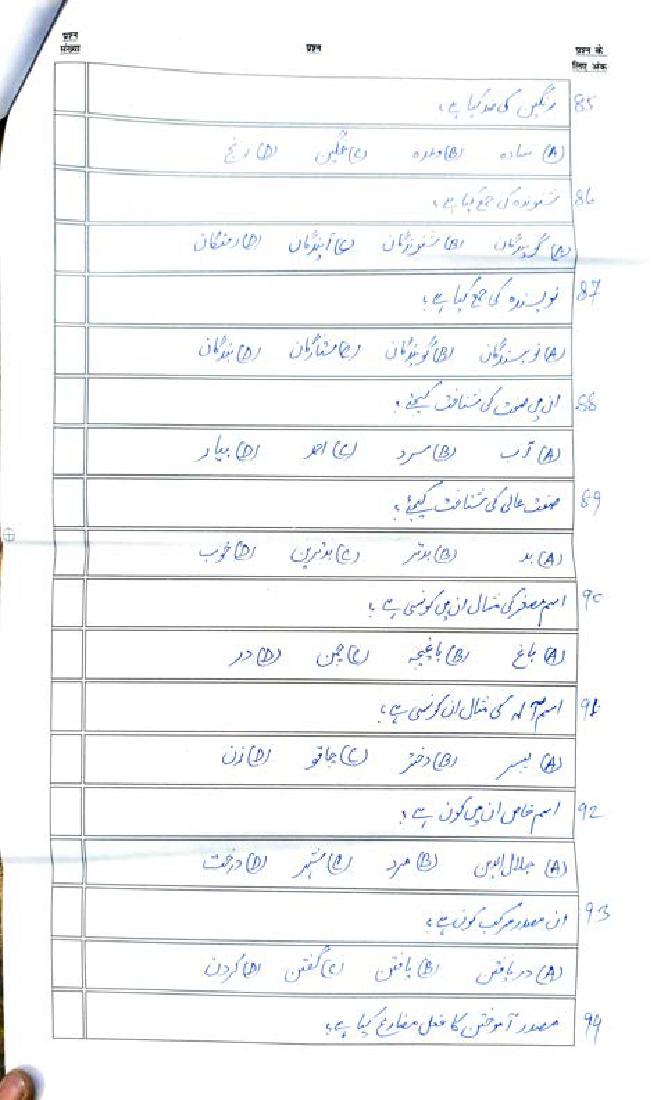 प्रश्न संख्या
प्रश्न
प्रश्न के लिए अंक
85 رنگین کی ضد کیا ہے؟
(A) سادہ (B) وعدہ (C) غمگین (D) رنج
86 شنوندہ کی جمع کیا ہے؟
(A) گویندگان (B) شنوندگان (C) آیندگان (D) رفتگان
87 نویسندہ کی جمع کیا ہے؟
(A) نویسندگان (B) گویندگان (C) ستارگان (D) بندگان
88 ان میں صفت کی شناخت کیجئے؟
(A) آب (B) سرد (C) احمد (D) بیمار
89 صفت عالی کی شناخت کیجئے؟
(A) بد (B) بدتر (C) بدترین (D) خوب
90 اسم مصغر کی مثال ان میں کونسی ہے؟
(A) باغ (B) باغیچہ (C) چمن (D) در
91 اسم آلہ کی مثال ان کونسی ہے؟
(A) پسر (B) دختر (C) چاقو (D) زن
92 اسم خاص ان میں کون ہے؟
(A) جلال الدین (B) مرد (C) شہر (D) درخت
93 ان مصادر مرکب کون ہے؟
(A) دریافتن (B) یافتن (C) گفتن (D) کردن
94 مصدر آموختن کا فعل مضارع کیا ہے؟